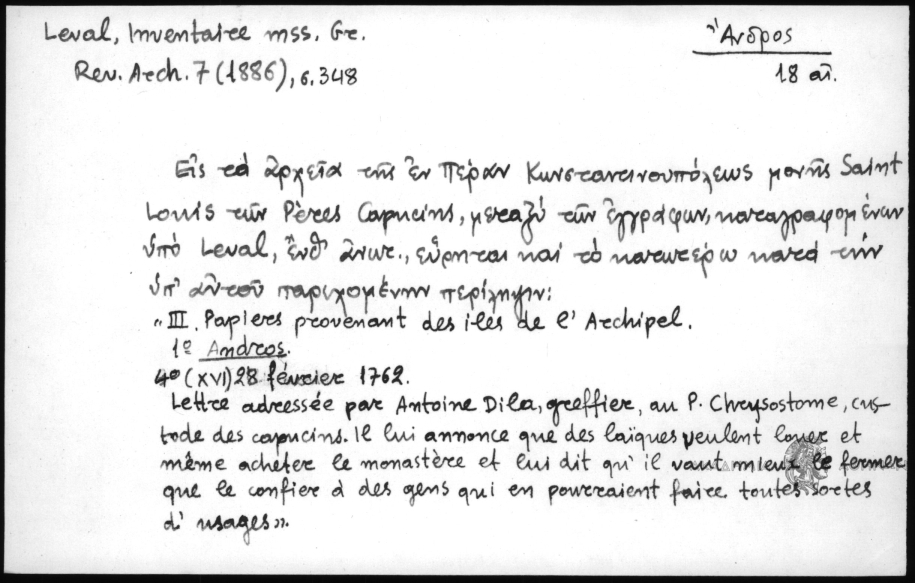 Leval, Inventaire mss. Gr.
Ἄνδρος
Rev. Arch. 7 (1886), σ. 348
18 αἰ.
Εἰς τὰ ἀρχεῖα τῆς ἐν Πέραν Κωνσταντινουπόλεως μονῆς Saint
Louis τῶν Pères Capucins, μεταξὺ τῶν ἐγγράφων, καταγραφομένων
ὑπὸ Leval, ἔνθ' ἀνωτ., εὕρηται καὶ τὸ κατωτέρω κατὰ τὴν
ὑπ' αὐτοῦ παρεχομένην περίληψιν:
„III. Papiers provenant des iles de l'Archipel.
1º Andros.
4º (XVI) 28 février 1762.
Lettre adressée par Antoine Dila, greffier, au P. Chrysostome, cus-
tode des capucins. Il lui annonce que des laïques veulent louer et
même acheter le monastère et lui dit qu'il vaut mieux le fermer
que le confier à des gens qui en pourraient faire toutes sortes
d'usages».